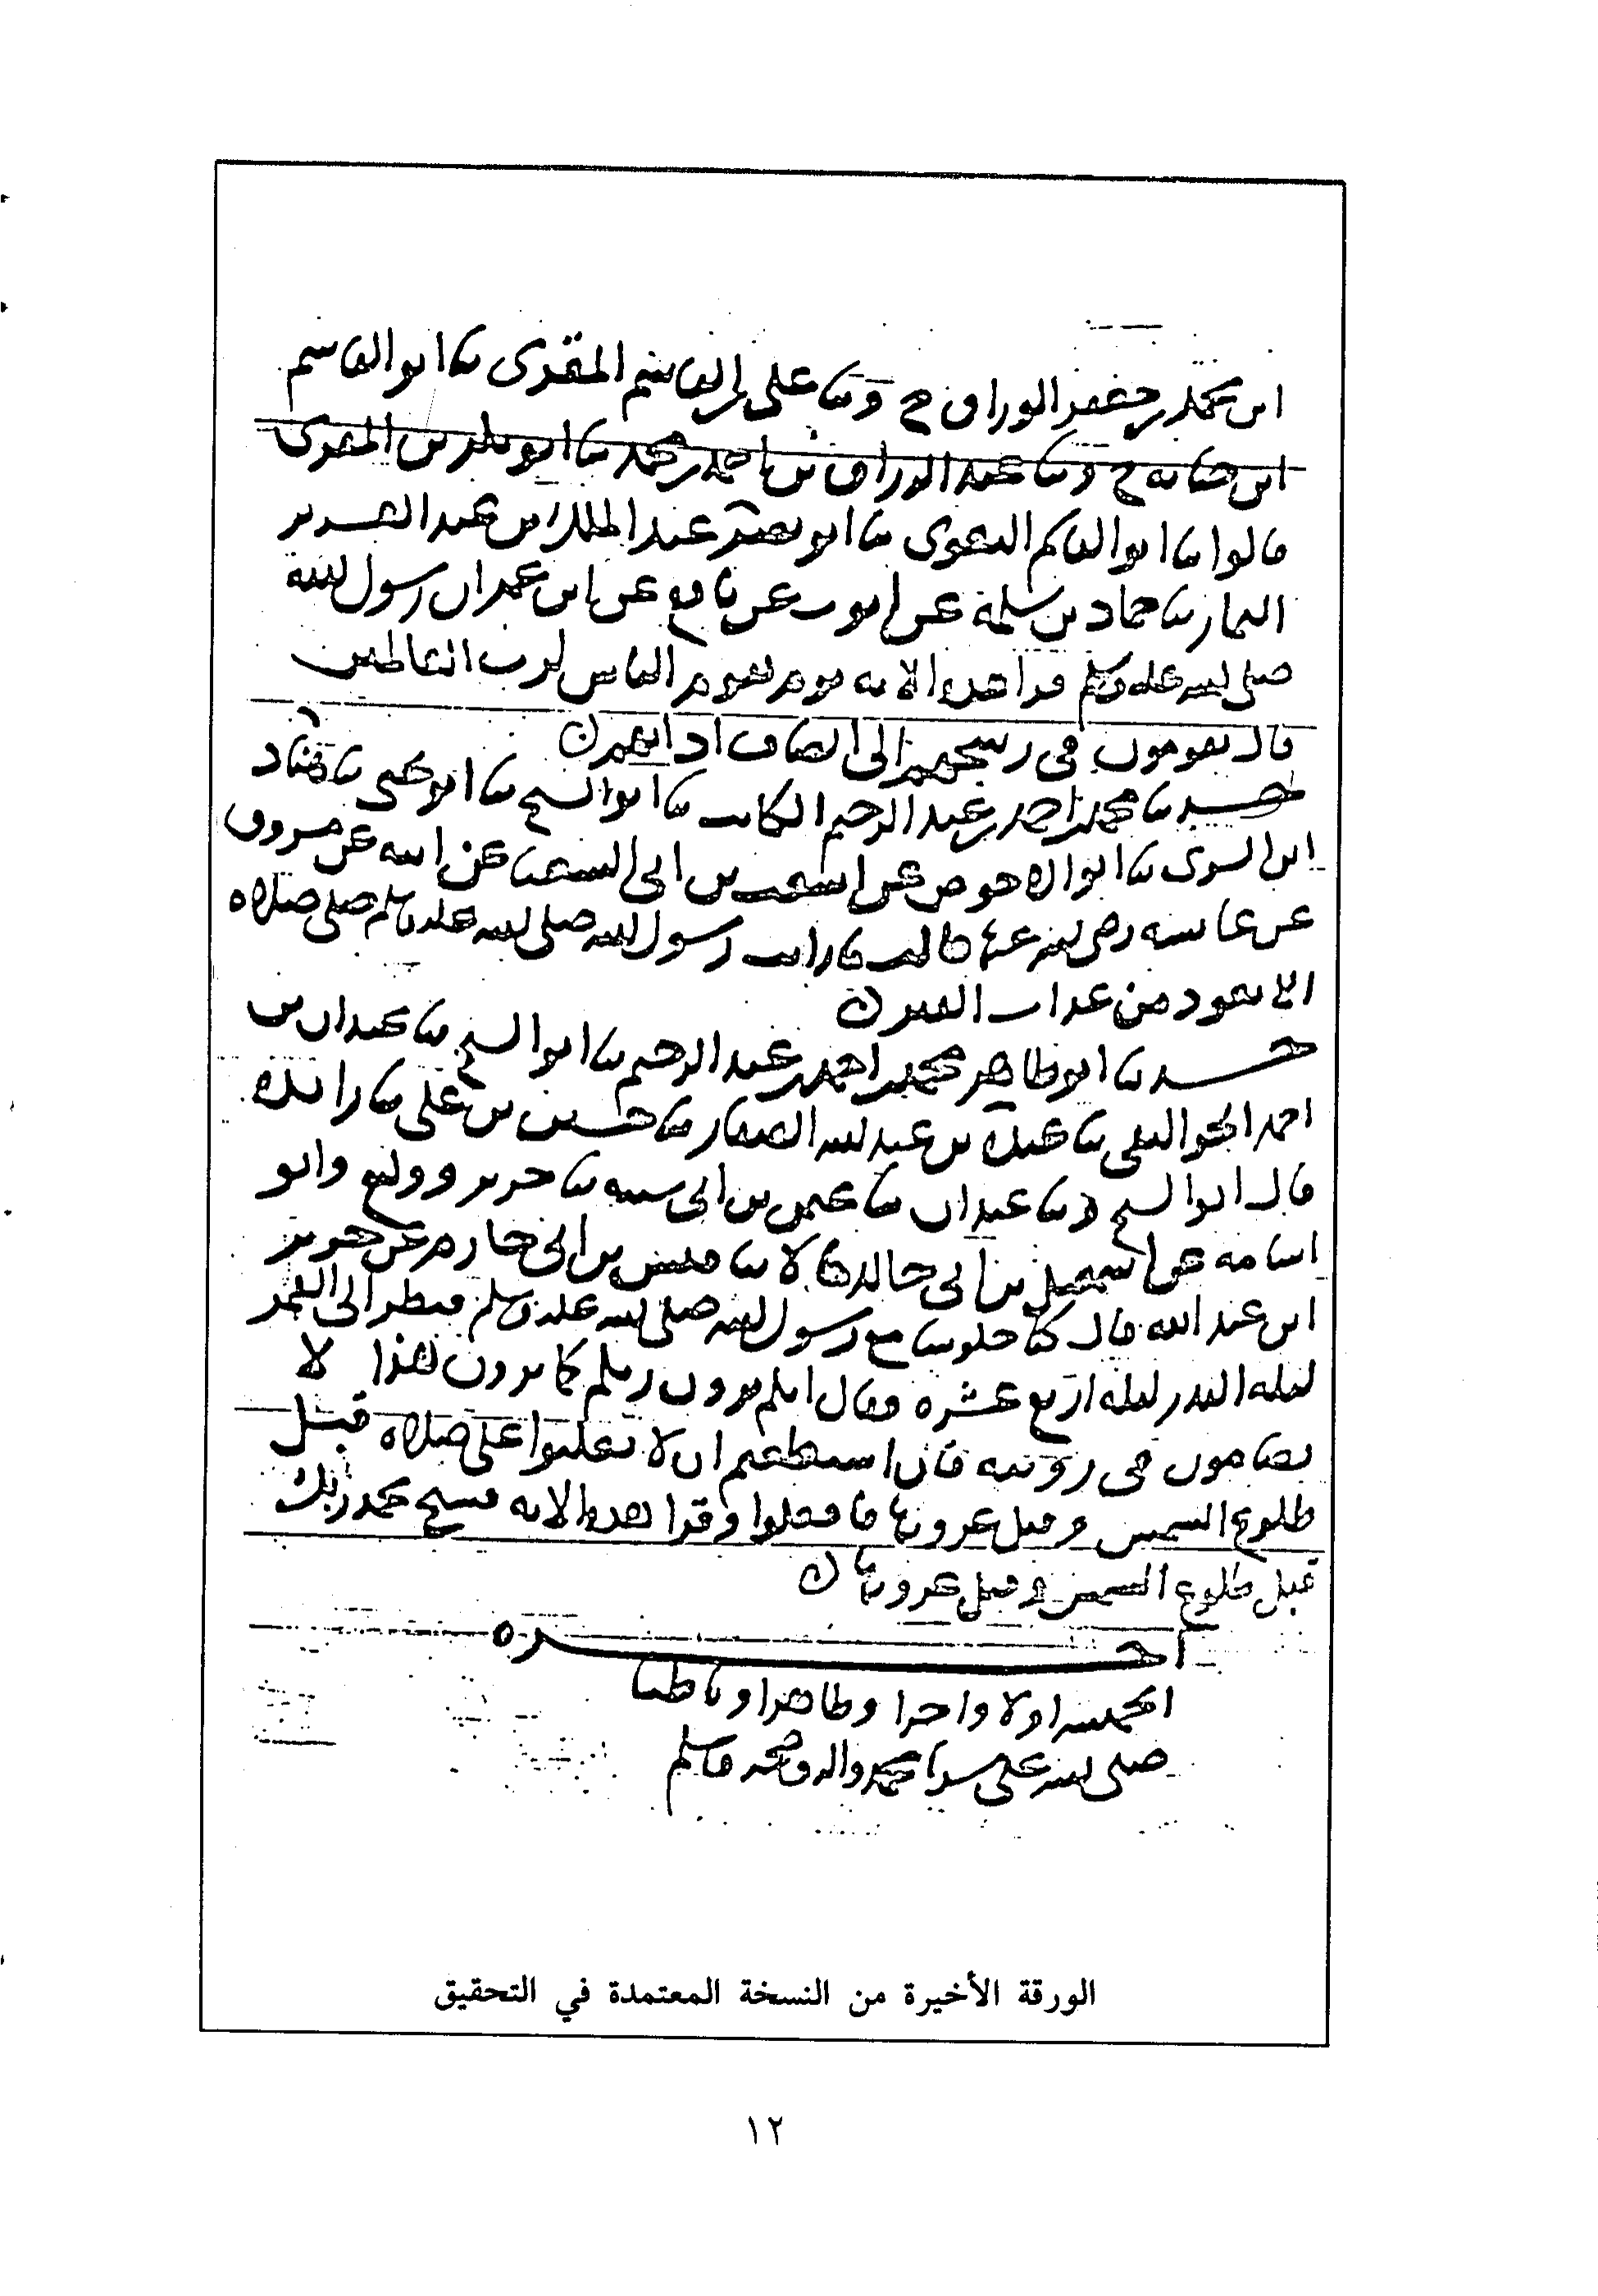 ابن محمد بن جعفر الوراق ح وثنا على بن القاسم المقرى ثنا ابو القاسم
ابن حبابه ح وثنا عبد الرزاق بن احمد بن محمد ثنا ابو بكر بن المقرى
قالوا ثنا ابو القاسم البغوى ثنا ابو نصر عبد الملك ابن عبد العزيز
التمار ثنا حماد بن سلمة عن ايوب عن نافع عن ابن عمر ان رسول الله
صلى الله عليه وسلم قرا هذه الايه يوم يقوم الناس لرب العالمين
قال يقومون فى رشحهم الى انصاف اذانهم
حدثنا محمد بن احمد بن عبد الرحيم الكاتب ثنا ابو الشيخ ثنا ابو يحيى ثنا هناد
ابن السرى ثنا ابو الاحوص عن اشعث بن ابى الشعثا عن ابيه عن مسروق
عن عايشه رضى الله عنها قالت ما رايت رسول الله صلى الله عليه وسلم صلى صلاه
الا تعوذ من عذاب القبر
حدثنا ابو طاهر محمد بن احمد بن عبد الرحيم ثنا ابو الشيخ ثنا عبدان بن
احمد الجواليقى ثنا عبده بن عبد الله الصفار ثنا حسين بن على ثنا زائده
قال ابو الشيخ وثنا عبدان ثنا عثمن بن ابى شيبه ثنا جرير ووكيع وابو
اسامه عن اسمعيل بن ابى خالد قالا ثنا قيس بن ابى حازم عن جرير
ابن عبد الله قال كنا جلوسا مع رسول الله صلى الله عليه وسلم فنظر الى القمر
ليله البدر ليله اربع عشره فقال انكم ترون ربكم كما ترون هذا لا
تضامون فى رؤيته فان استطعتم ان لا تغلبوا على صلاه قبل
طلوع الشمس وقبل غروبها فافعلوا وقرا هذه الايه فسبح بحمد ربك
قبل طلوع الشمس وقبل غروبها
اخره
الحمد لله اولا واخرا وظاهرا وباطنا
صلى الله على سيدنا محمد واله وصحبه وسلم
الورقة الأخيرة من النسخة المعتمدة في التحقيق
١٢